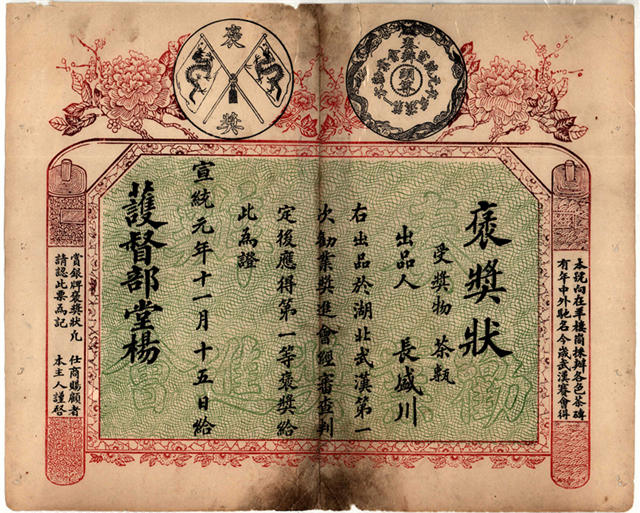 褒
獎
頭等
褒獎狀
受獎物 茶瓾
出品人 長盛川
右出品於湖北武漢第一
次勸業獎進會經審查判
定後應得第一等褒獎給
此為證
宣統元年十一月十五日給
護督部堂楊
本號向在羊樓崗採辦各色茶磚
有年中外馳名今歲武漢賽會得
賞銀牌褒獎狀凡 仕商賜顧者
請認此票為記 本主人謹啓
勸
進
會